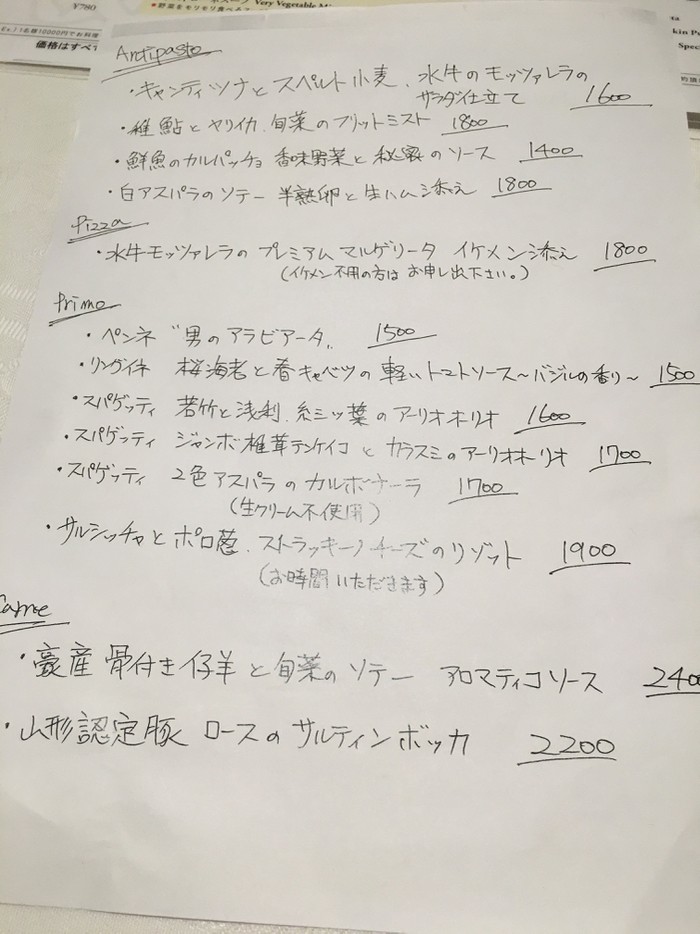 ¥780
*野菜をモリモリ食べ
Very Vegetable M
(1名様10000円でお料理
価格はすべて
kin P
Spec
Antipasto
・キャンティツナとスペルト小麦、水牛のモッツァレラの
サラダ仕立て 1600
・稚鮎とヤリイカ、旬菜のフリットミスト 1800
・鮮魚のカルパッチョ 香味野菜と秘密のソース 1400
・白アスパラのソテー 半熟卵と生ハム添え 1800
Pizza
・水牛モッツァレラの プレミアム マルゲリータ イケメン添え 1800
(イケメン不用の方は お申し出下さい。)
Primo
・ペンネ "男のアラビアータ" 1500
・リングイネ 桜海老と春キャベツの軽いトマトソース〜バジルの香り〜 1500
・スパゲッティ 若竹と浅利、糸ミツ葉のアーリオオーリオ 1600
・スパゲッティ ジャンボ椎茸テンケイコとカラスミのアーリオオーリオ 1700
・スパゲッティ 2色アスパラのカルボナーラ 1700
(生クリーム不使用)
・サルシッチャとポロ葱、ストラッキーノチーズのリゾット 1900
(お時間いただきます)
Carne
・豪産 骨付き仔羊と旬菜のソテー アロマティコソース 2400
・山形認定豚 ロースのサルティンボッカ 2200